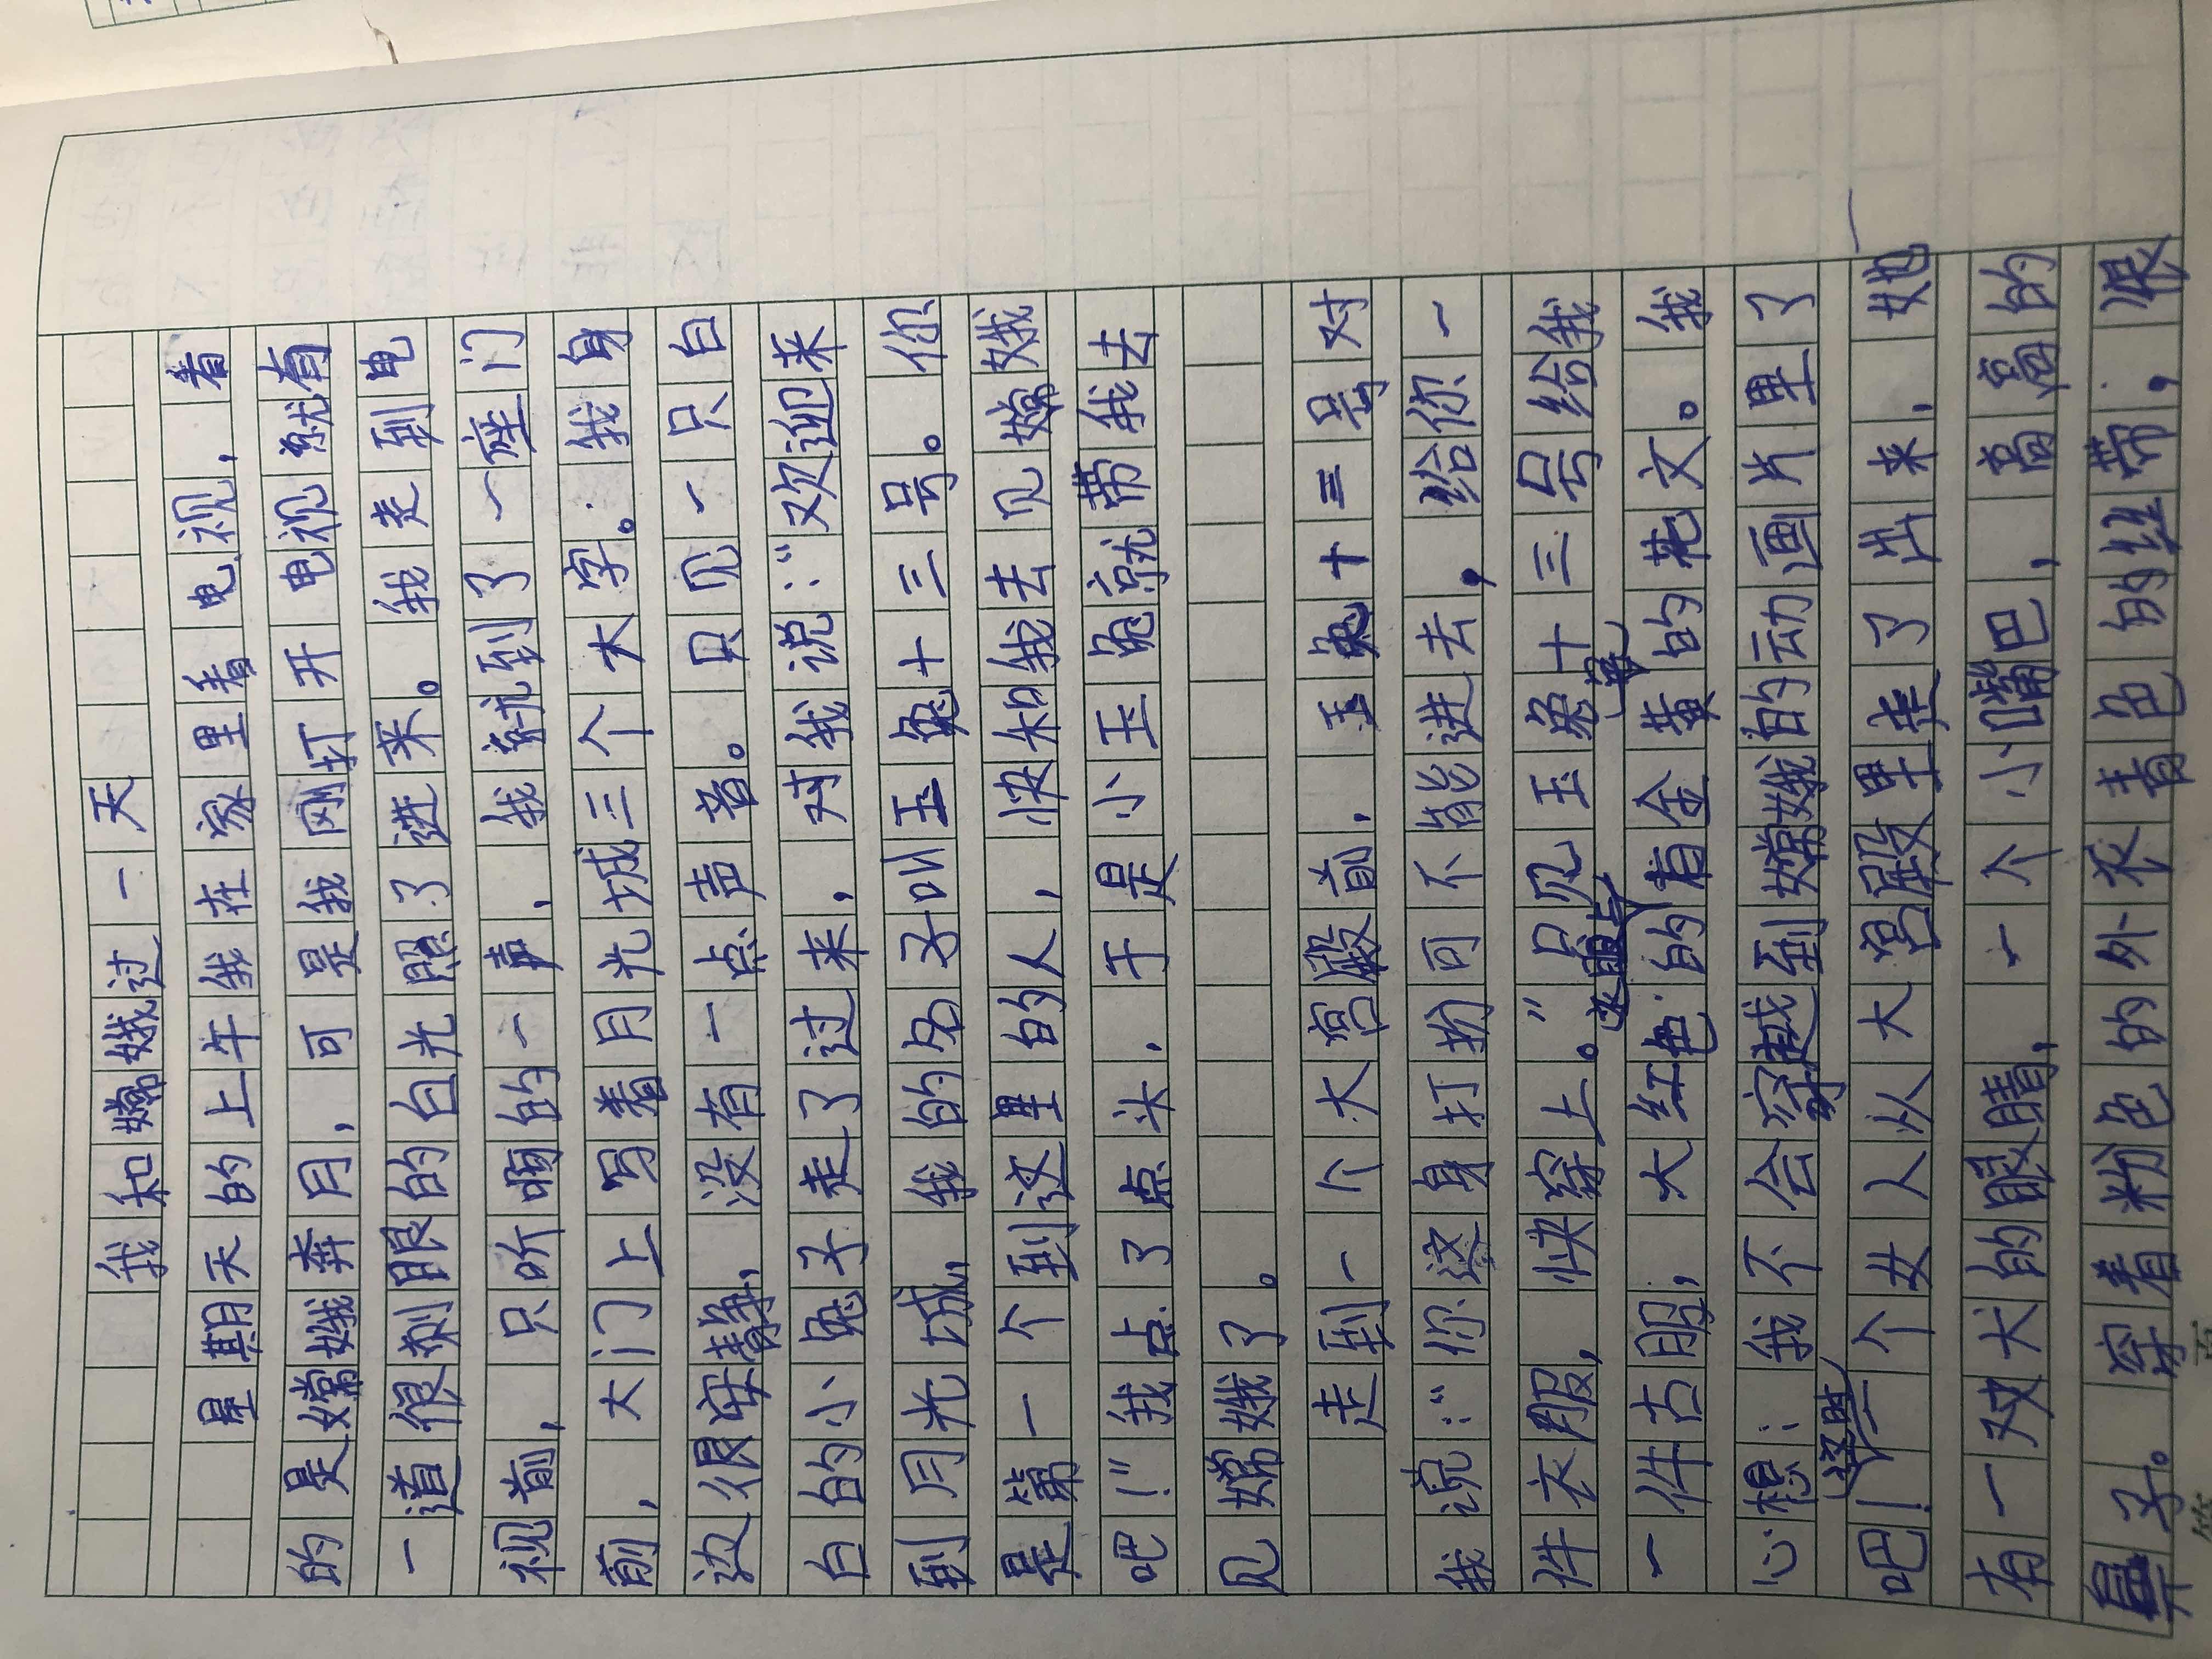 我和嫦娥过一天
星期天的上午我在家里看电视，看
的是嫦娥奔月，可是我刚打开电视就有
一道很刺眼的白光照了进来。我走到电
视前，只听嘣的一声，我就到了一座门
前，大门上写着月光城三个大字。我身
边很安静，没有一点声音。只见一只白
白的小兔子走了过来，对我说：“欢迎来
到月光城，我的名子叫玉兔十三号。你
是第一个到这里的人，快和我去见嫦娥
吧！”我点了点头，于是小玉兔就带我去
见嫦娥了。
走到一个大宫殿前，玉兔十三号对
我说：“你这身打扮可不能进去，给你一
件衣服，快穿上。”只见玉兔十三号给我
一件古服，大红色的有金黄的花文。我
心想：我不会穿越到嫦娥的动画片里了
吧！一个女人从大宫殿里走了出来，她
有一双大的眼睛，一个小嘴巴，高高的
鼻子。穿着粉色的外衣青色的丝带，很